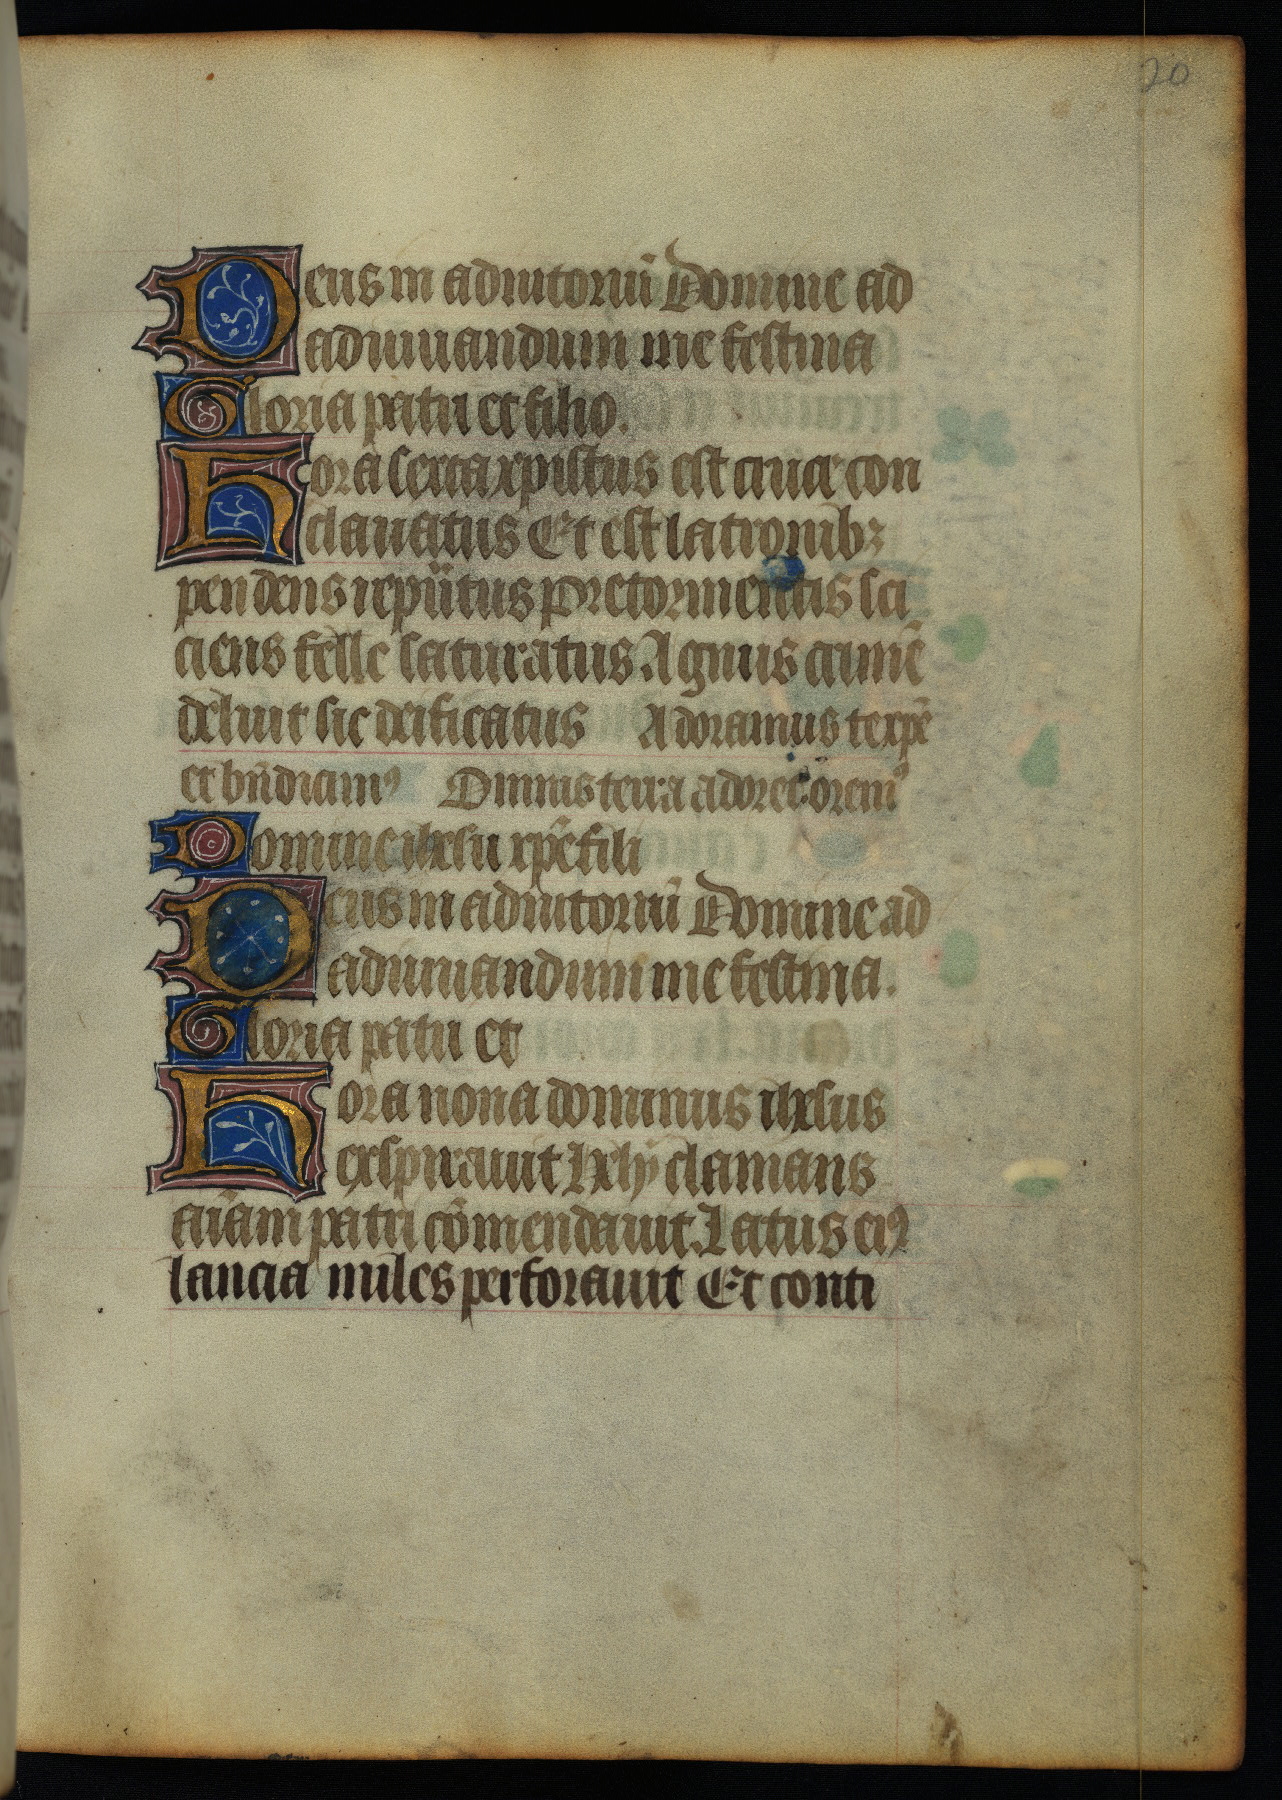 20
Deus in adiutoriū Domine ad
adiuuandum me festina
Gloria patri et filio.
Hora sexta xpistus est cruce con
clauatus Et est latronibꝫ
pendens reputus Pre tormentis sci
ciens felle saturatus Agnus crimē
deluit sic deificatus Adoramus te xpē
et bn̄dicimꝰ Omnis terra adoret oremꝰ
Domine ihesu xpē fili
Deus in adiutoriū Domine ad
adiuuandum me festina.
Gloria patri et
Hora nona dominus ihesus
exspirauit Hely clamans
aīam patri cōmendauit Latus eiꝰ
lancia miles perforauit Et conti